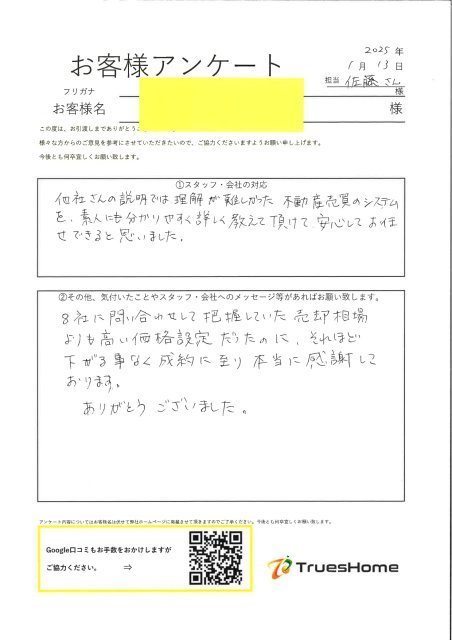 2025年
1月13日
お客様アンケート
担当 佐藤さん
フリガナ
様
お客様名
様
この度は、お引渡しまでありがとうご
様々な方からのご意見を参考にさせていただきたいので、ご協力くださいますようお願い申し上げます。
今後とも何卒宜しくお願い致します。
①スタッフ・会社の対応
他社さんの説明では理解が難しかった不動産売買のシステム
を、素人にも分かりやすく詳しく教えて頂けて、安心してお任
せできると思いました。
②その他、気付いたことやスタッフ・会社へのメッセージ等があればお願い致します。
8社に問い合わせして把握していた売却相場
よりも高い価格設定だったのに、それほど
下がる事なく成約に至り本当に感謝して
おります。
ありがとうございました。
アンケート内容についてはお客様名は伏せて弊社ホームページに掲載させて頂きますのでご了承ください。今後とも何卒宜しくお願い致します。
Google口コミもお手数をおかけしますが
ご協力ください。 ⇒
TruesHome